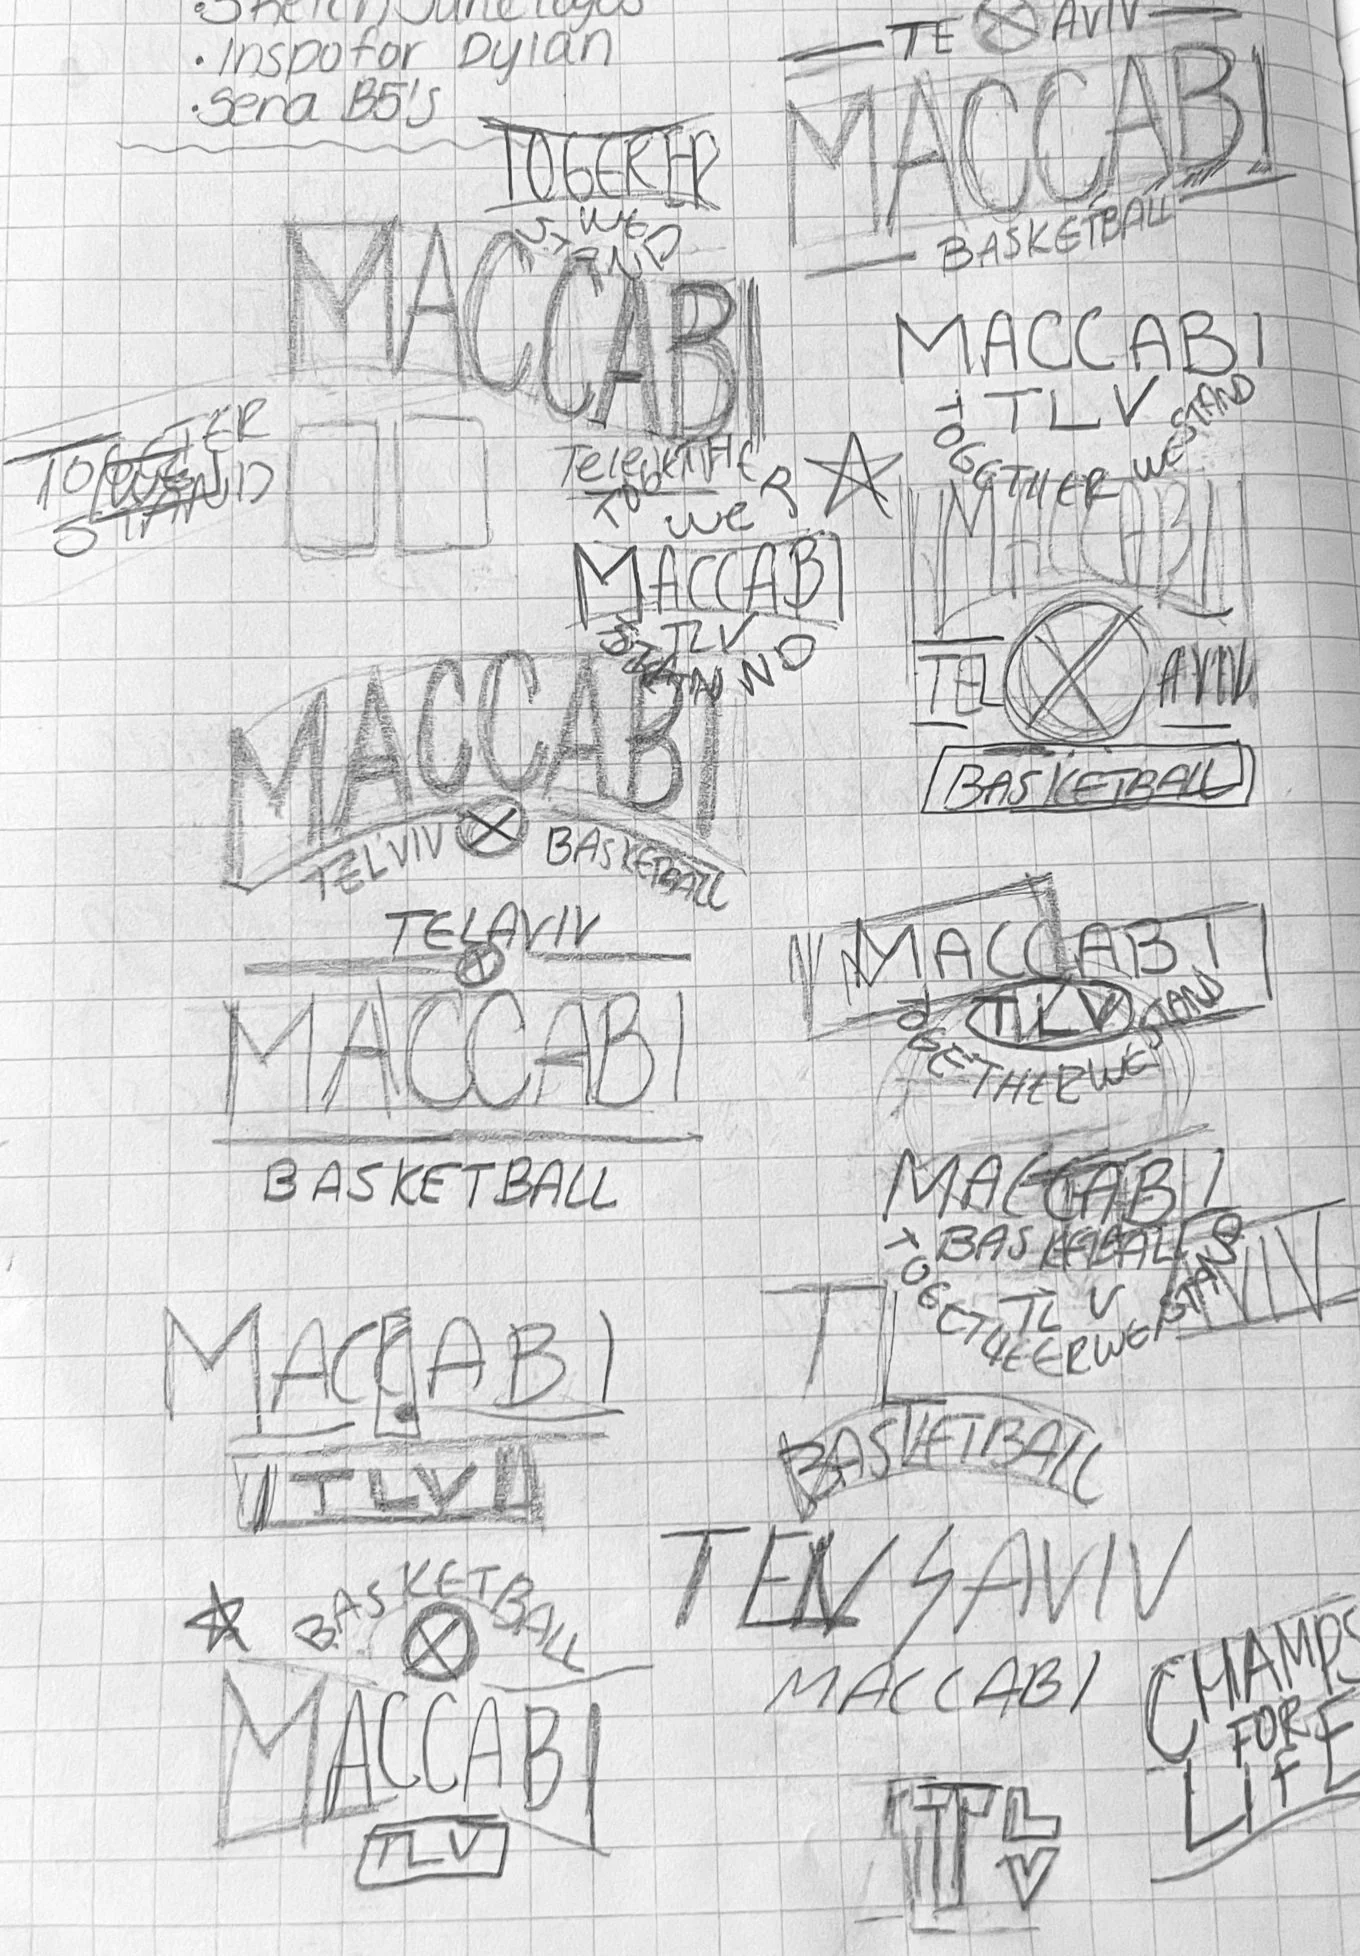 · Inspo for Dylan
· Send B5's
TE AVIV
MACCABI
BASKETBALL
TOGERER
WE
STAND
MACCABI
MACCABI
TLV
TOGETHER WE STAND
TOGETER
STAND
WE
MACCABI
TLV
STAND
MACCABI
TEL AVIV
BASKETBALL
MACCABI
TEL'VIV BASKETBALL
TELAVIV
MACCABI
BASKETBALL
MACCABI
TLV
TOGETHER WE STAND
MACCABI
BASKETBALL
TLV
TOGETHEER WE STAND
VIV
MACCABI
TLV
BASKETBALL
BASKETBALL
MACCABI
TLV
AVIV
MACCABI
CHAMPS
FOR
LIFE
TL
V